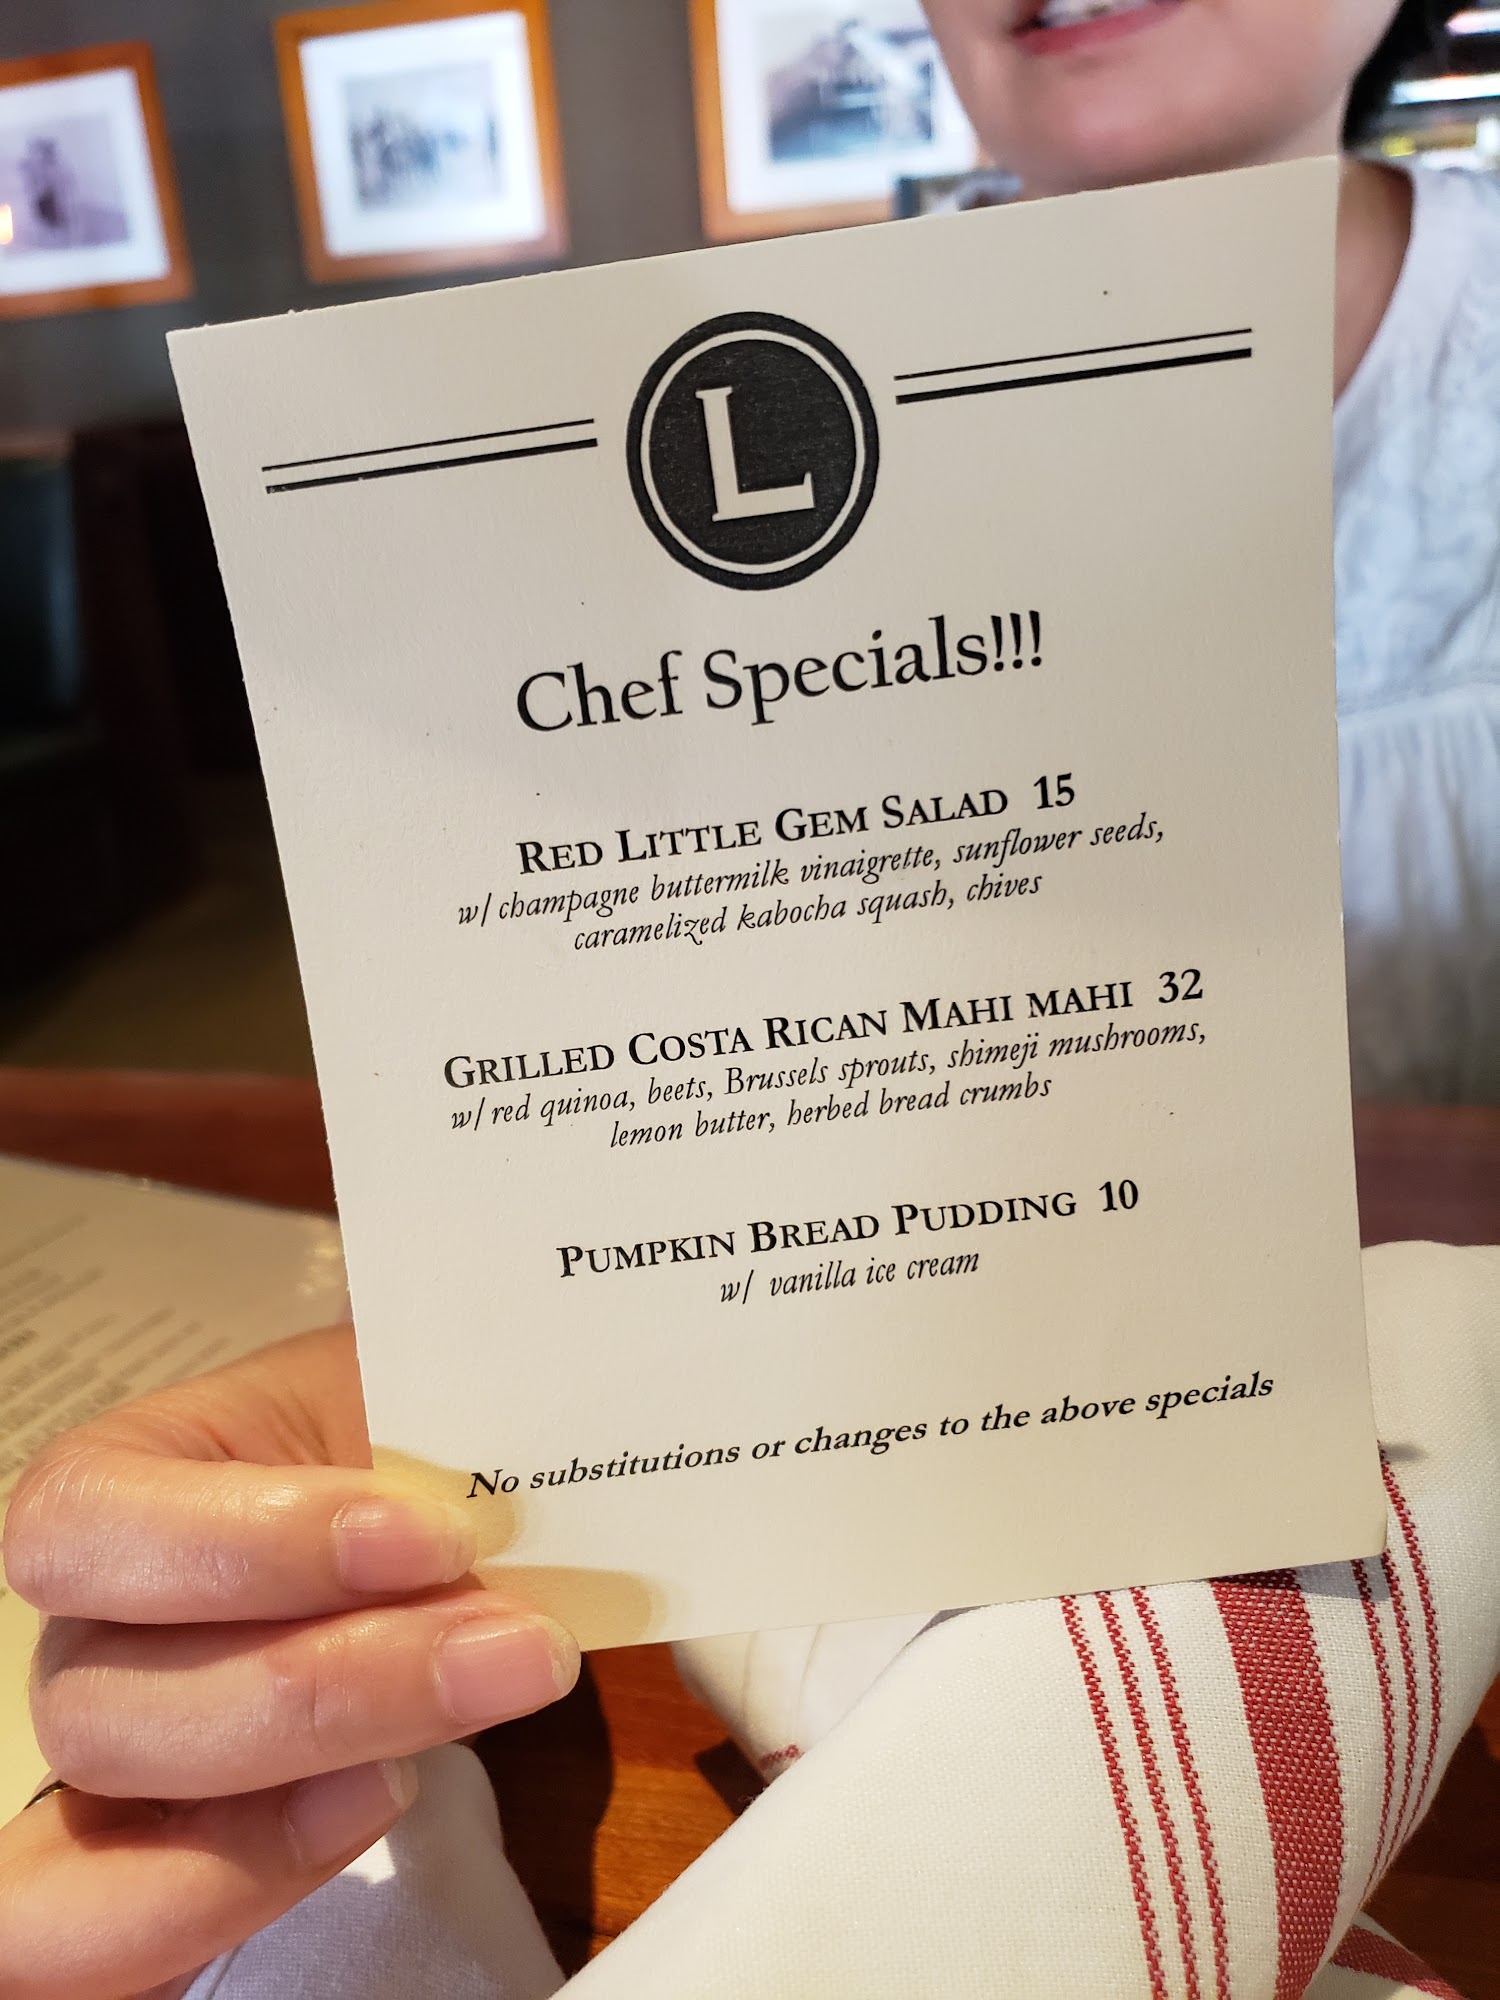 L
Chef Specials!!!
RED LITTLE GEM SALAD 15
w/ champagne buttermilk vinaigrette, sunflower seeds,
caramelized kabocha squash, chives
GRILLED COSTA RICAN MAHI MAHI 32
w/ red quinoa, beets, Brussels sprouts, shimeji mushrooms,
lemon butter, herbed bread crumbs
PUMPKIN BREAD PUDDING 10
w/ vanilla ice cream
No substitutions or changes to the above specials